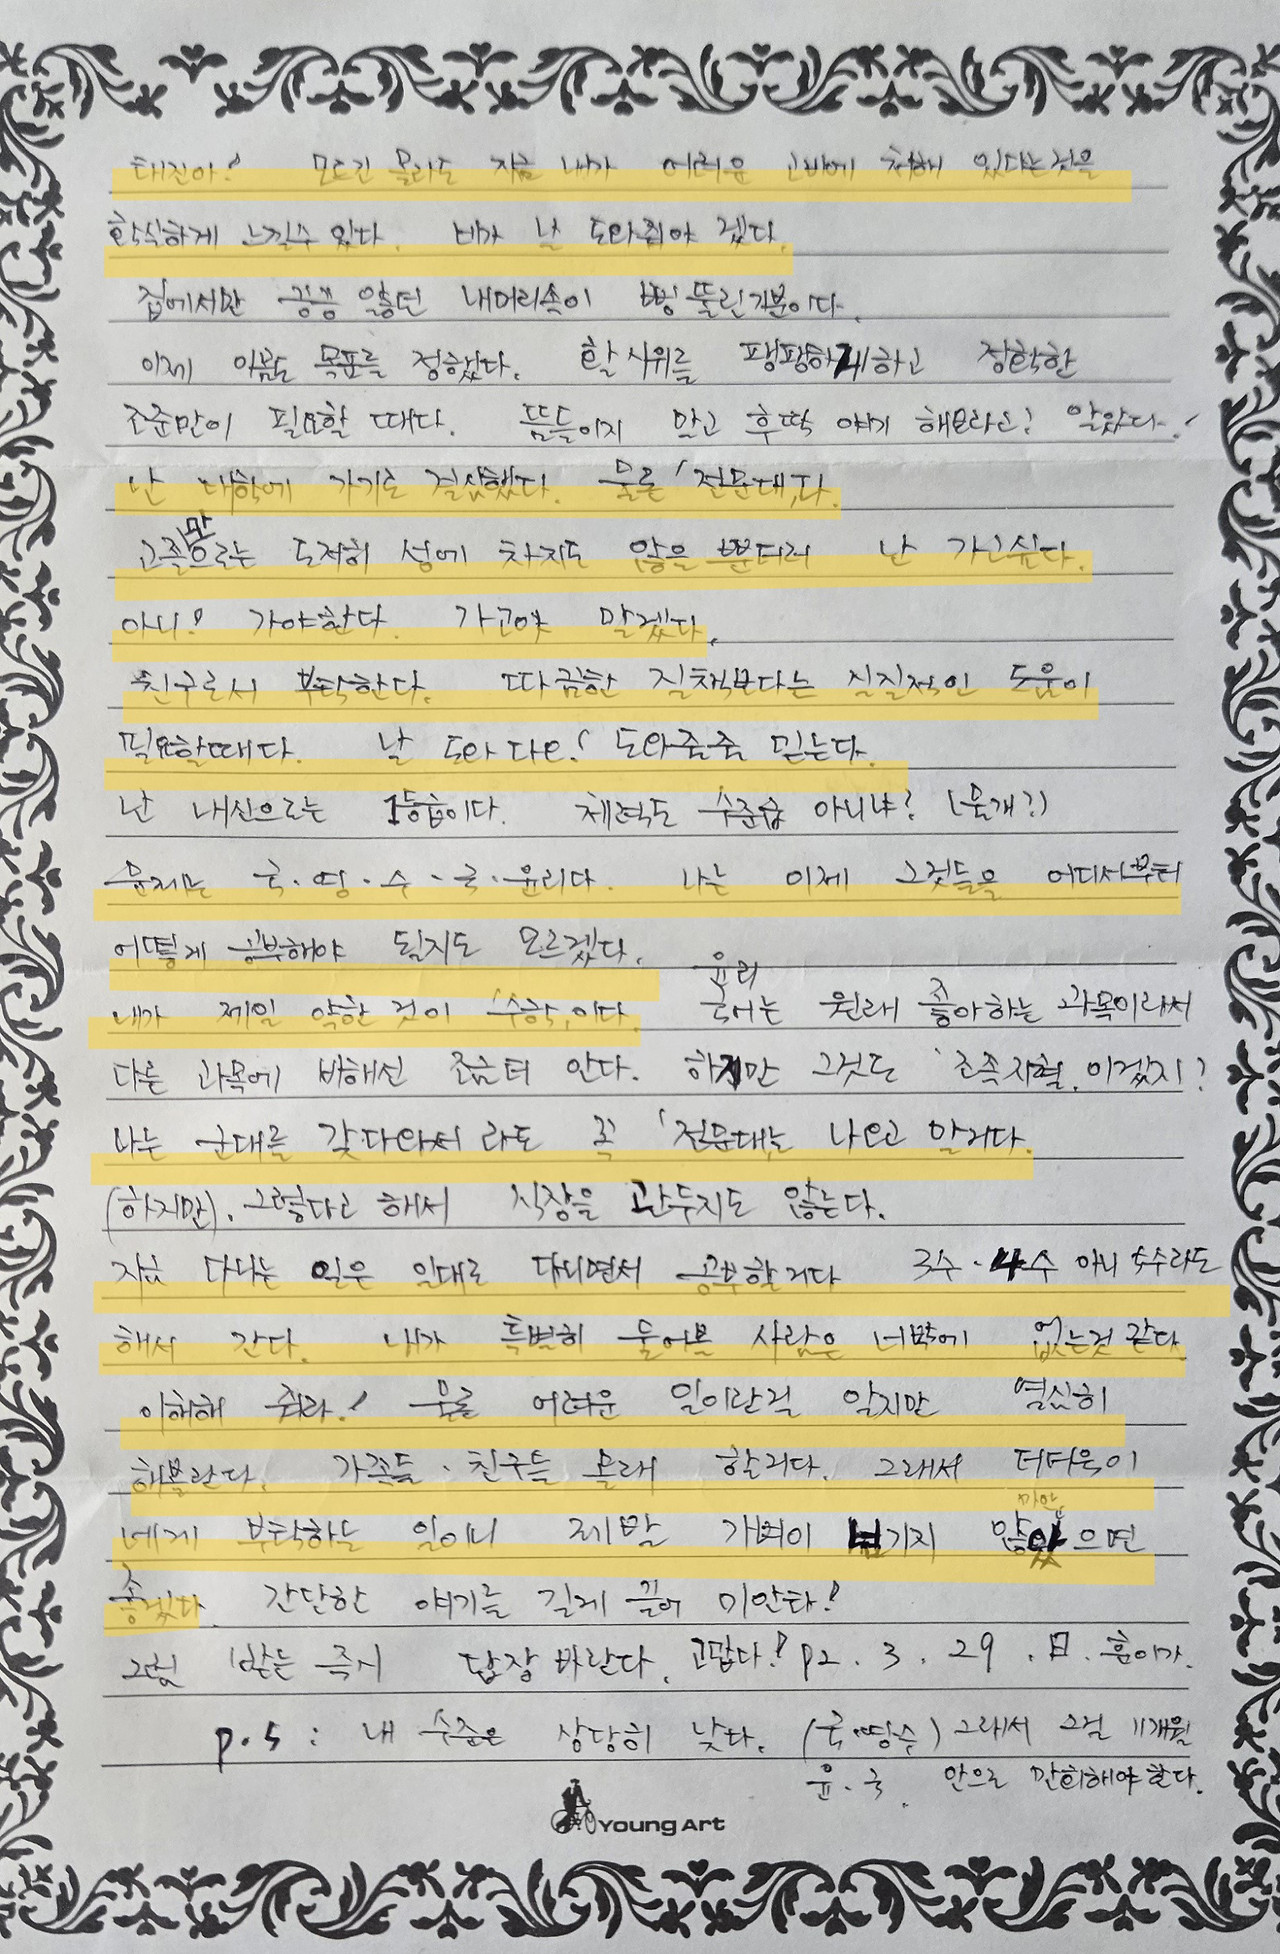 태진아! 모드긴 몰라도 지금 내가 어려운 고비에 처해 있다는것을
확실하게 느낄수 있다. 네가 날 도와줘야 겠다.
집에서만 끙끙 앓던 내머리속이 뻥 뚫린기분이다.
이제 어쯤 목표를 정했다. 활 시위를 팽팽하게하고 정확한
조준만이 필요할 때다. 뜸들이지 말고 후딱 얘기 해보라고? 알았다!
난 대학에 가기로 결심했다. 물론 '전문대'다.
고졸만으로는 도저히 성에 차지도 않을 뿐더러 난 가고싶다.
아니! 가야한다. 가고야 말겠다.
친구로서 부탁한다. 따끔한 질책보다는 실질적인 도움이
필요할때다. 날 도와 다오! 도와줄줄 믿는다.
난 내신으로는 1등급이다. 체력도 수준급 아니냐? (물개?)
문제는 국·영·수·국·윤리다. 나는 이제 그것들을 어디서부터
어떻게 공부해야 될지도 모르겠다.
내가 제일 약한 것이 '수학'이다. 윤리 국어는 원래 좋아하는 과목이라서
다른 과목에 비해선 조금더 안다. 하지만 그것도 '조족지혈'이겠지?
나는 군대를 갖다와서 라도 꼭 '전문대'는 나오고 말거다.
(하지만). 그렇다고 해서 직장을 관두지도 않는다.
지금 다니는 일은 일대로 다니면서 공부할거다 3수·4수 아니 5수라도
해서 간다. 내가 특별히 물어볼 사람은 너밖에 없는것 같다.
이해해 줘라! 물론 어려운 일이란걸 알지만 열심히
해볼란다. 가족들·친구들 몰래 할거다. 그래서 더더욱이
네게 부탁하는 일이니 제발 가벼이 넘기지 말았으면
좋겠다. 간단한 얘기를 길게 끌어 미안타!
그럼 받는 즉시 답장 바란다. 고맙다! 92. 3. 29. 日. 훈이가.
p.s : 내 수준은 상당히 낮다. (국·영·수) 그래서 그걸 11개월
윤·국. 안으로 만회해야 한다.
Young Art